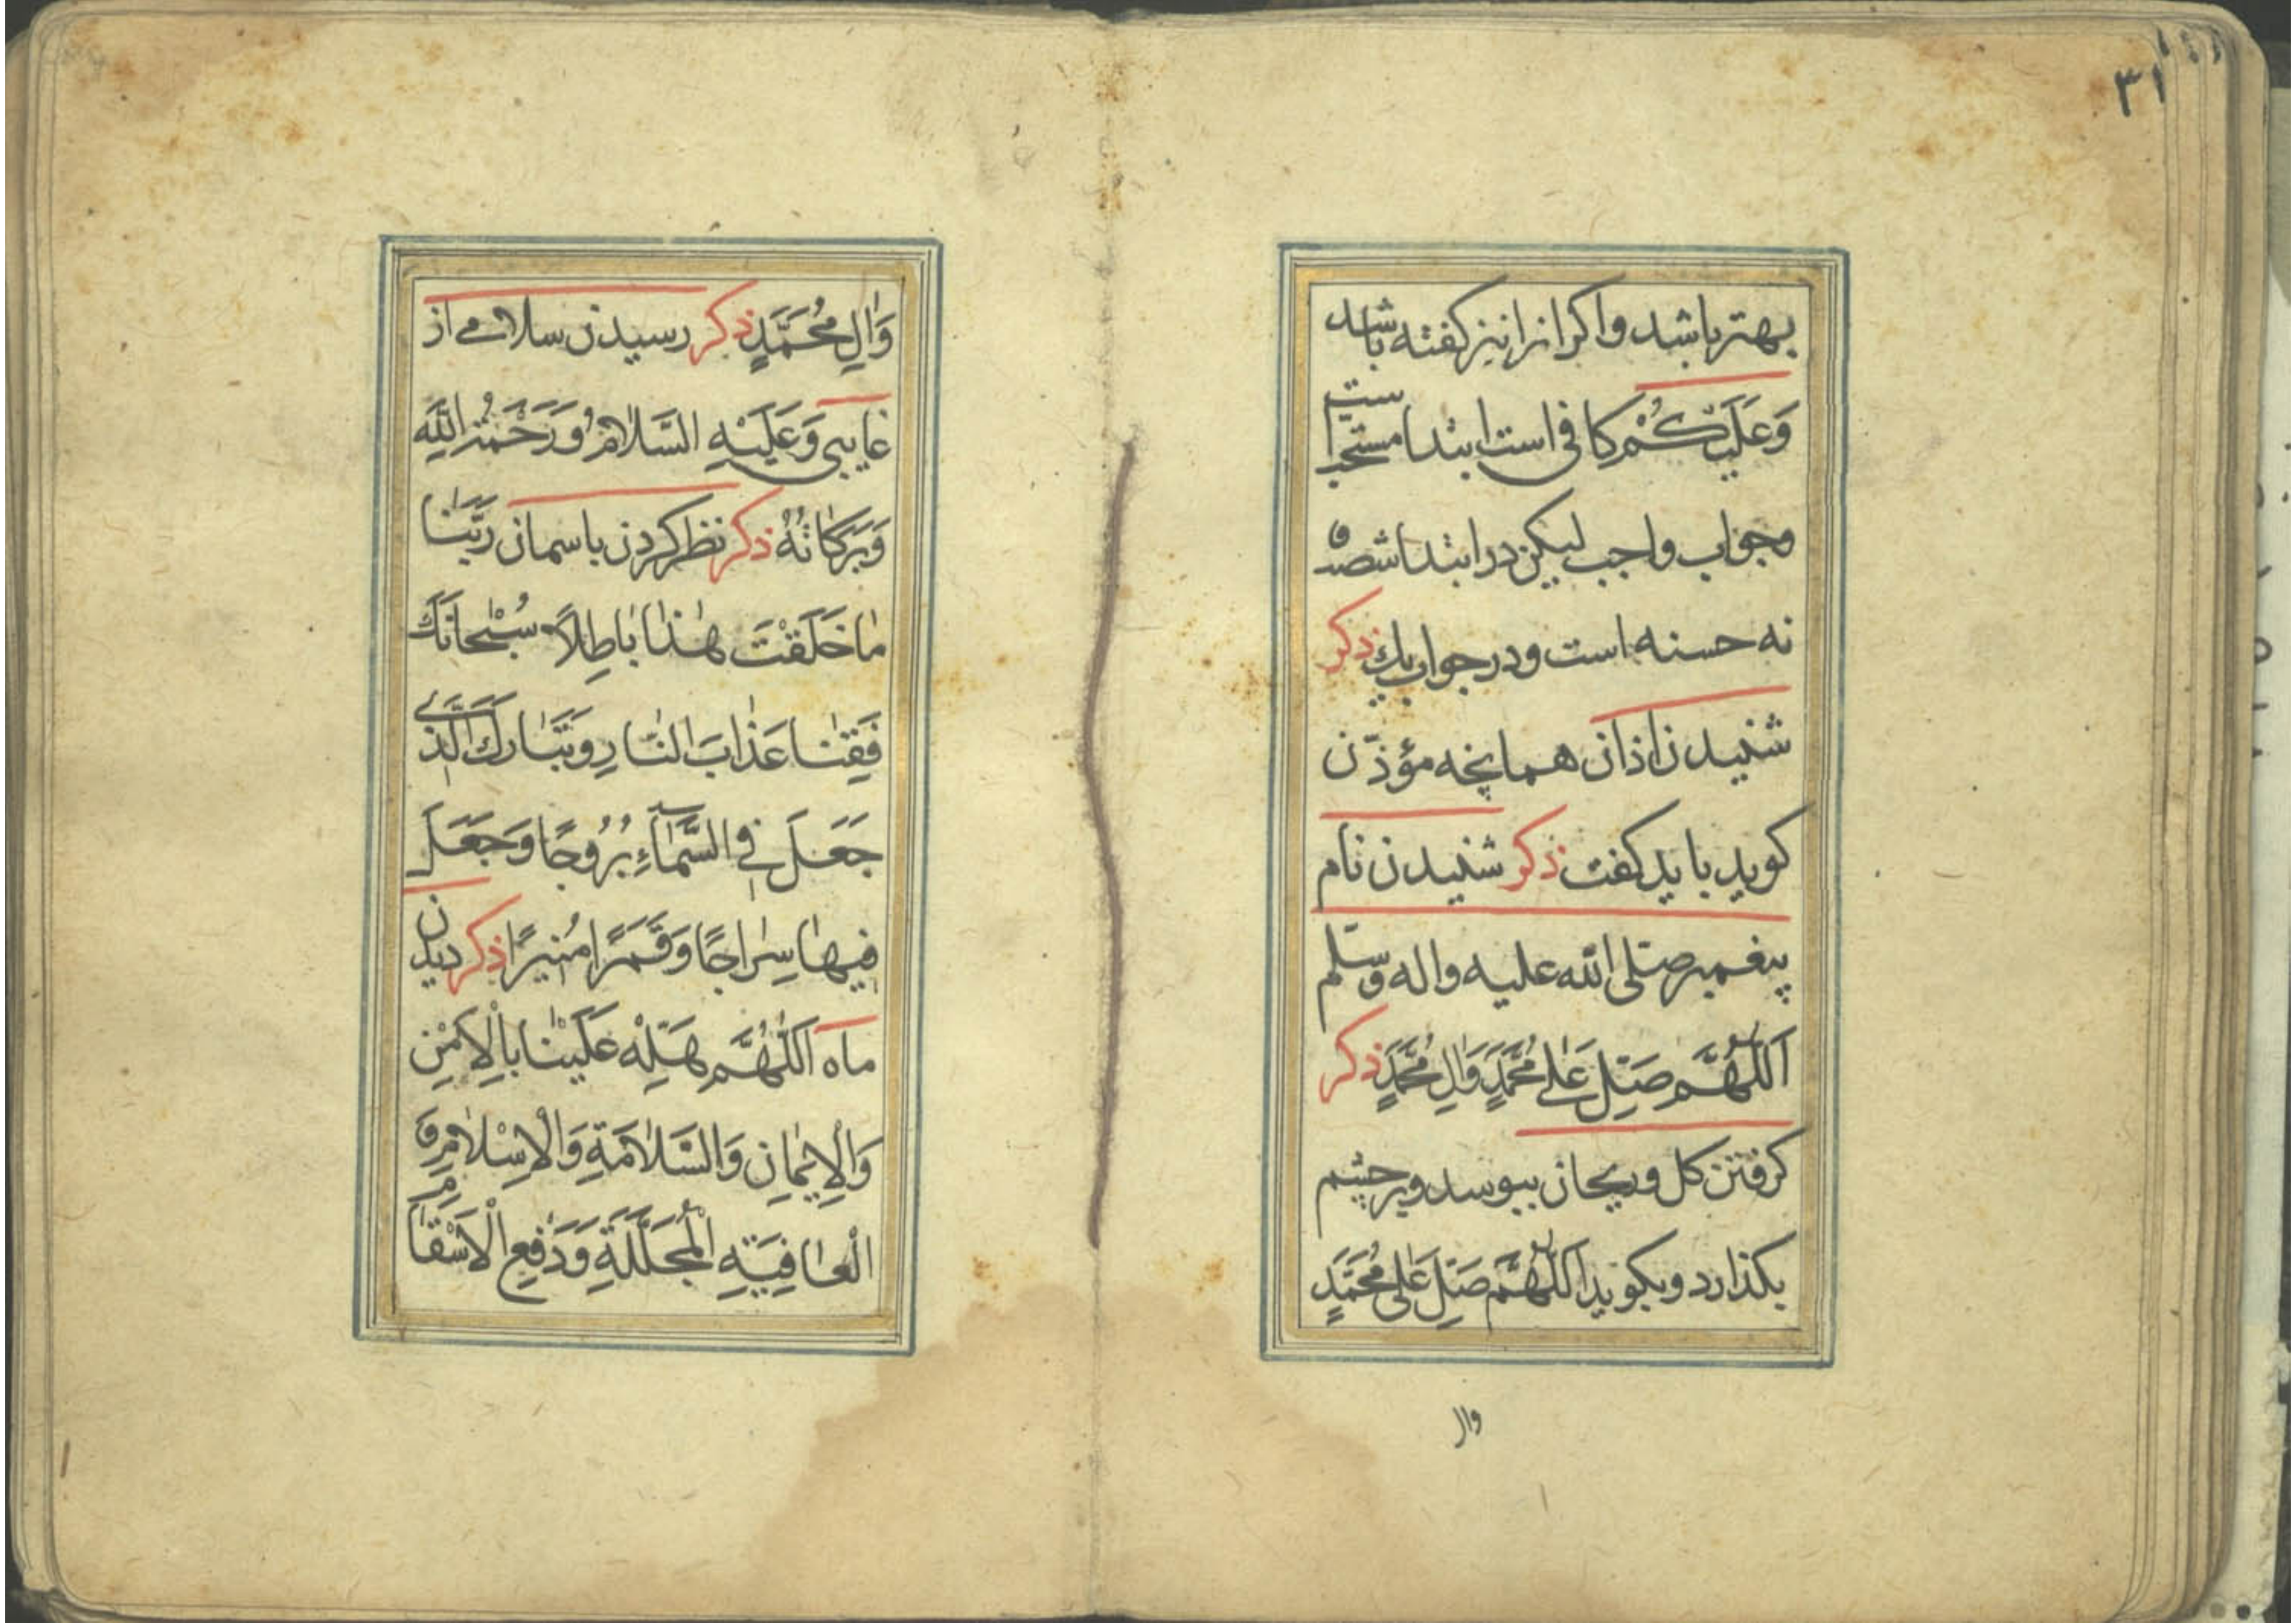 ۳۱
بهتر باشد و اکر انرا نیز کفته باشد
وَعَلَیْكُمْ کافی است ابتدا مستحب است
وجواب واجب لیکن در ابتدا شصت و
نه حسنه است ودر جواب یك ذکر
شنیدن اذان همانچه مؤذّن
کوید باید کفت ذکر شنیدن نام
پیغمبر صلّی الله علیه واله وسلّم
اَللّٰهُمَّ صَلِّ عَلٰی مُحَمَّدٍ وَاٰلِ مُحَمَّدٍ ذکر
کرفتن کل وریحان ببوسد وبر چشم
بکذارد وبکوید اَللّٰهُمَّ صَلِّ عَلٰی مُحَمَّدٍ
وال
وَاٰلِ مُحَمَّدٍ ذکر رسیدن سلامے از
غایبی وَعَلَیْهِ السَّلٰامُ وَرَحْمَةُ اللّٰهِ
وَبَرَکٰاتُهُ ذکر نظر کردن باسمان رَبَّنٰا
مٰا خَلَقْتَ هٰذٰا بٰاطِلاً سُبْحٰانَكَ
فَقِنٰا عَذٰابَ النّٰارِ وَتَبٰارَكَ الَّذٖی
جَعَلَ فِی السَّمٰآءِ بُرُوجًا وَجَعَلَ
فٖیهٰا سِرٰاجًا وَقَمَرًا مُنٖیرًا ذکر دیدن
ماه اَللّٰهُمَّ هَلِّلْهُ عَلَیْنٰا بِالْاَمْنِ
وَالْاٖیمٰانِ وَالسَّلٰامَةِ وَالْاِسْلٰامِ وَ
الْعٰافِیَةِ الْمُجَلَّلَةِ وَدَفْعِ الْاَسْقٰامِ